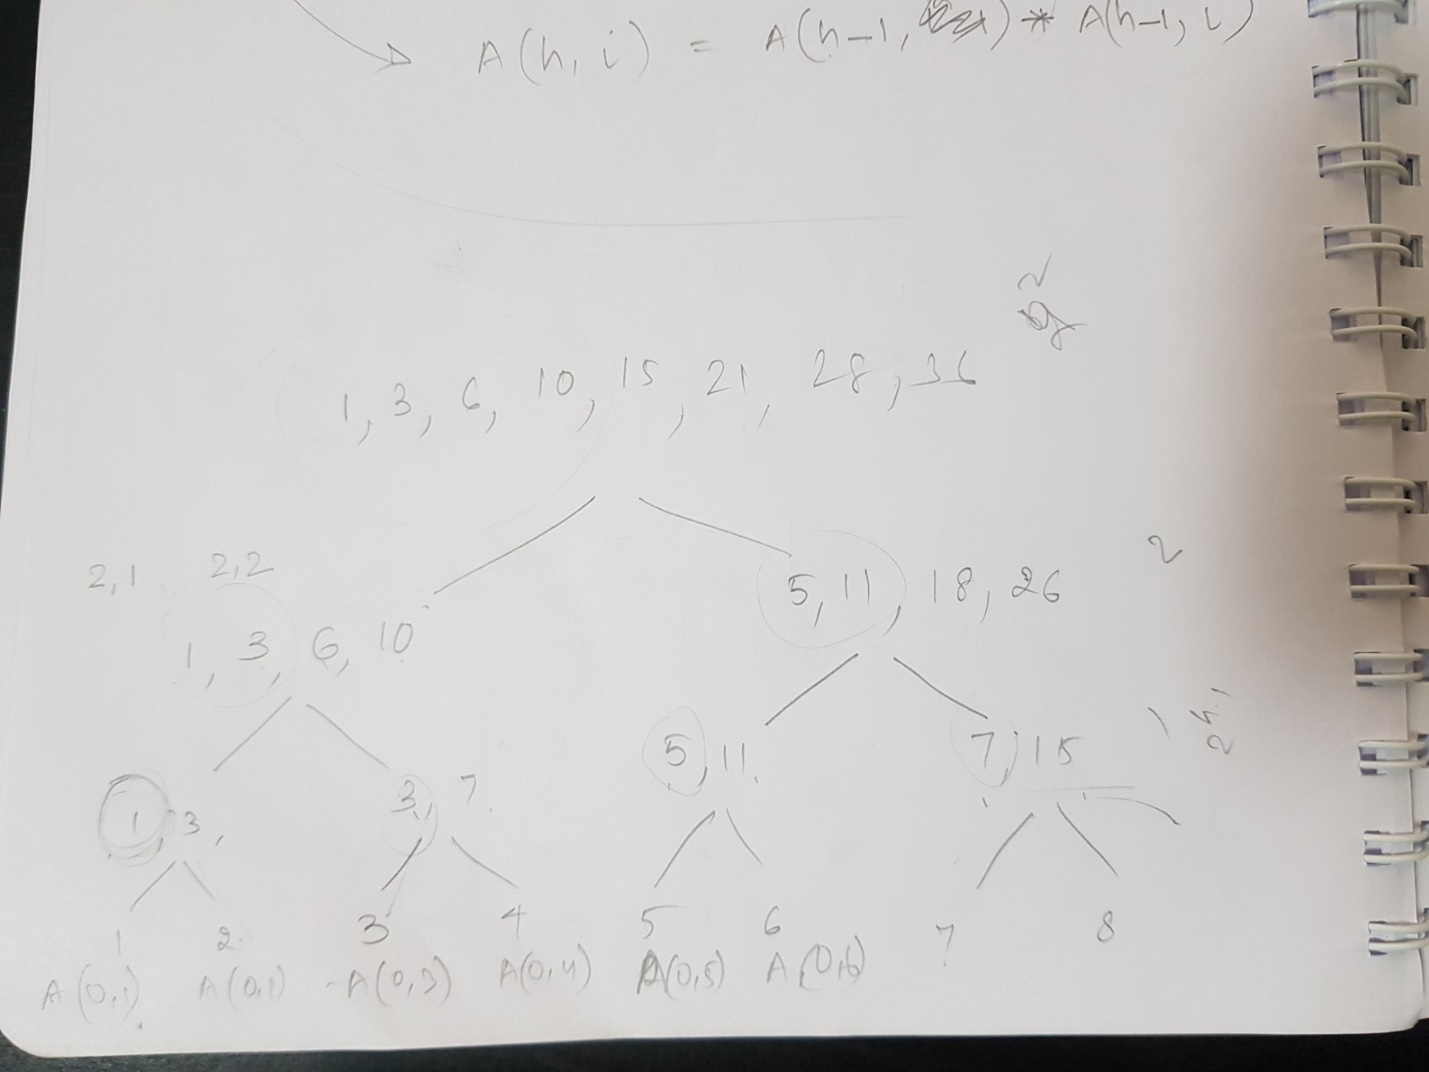 A(h, i) = A(h-1, ) * A(h-1, i)
1, 3, 6, 10, 15, 21, 28, 36
2,1 2,2
5, 11, 18, 26
2
1, 3, 6, 10
5, 11.
7, 15
1, 3,
3, 7.
1 2. 3 4 5 6 7 8
A(0,1) A(0,2) A(0,3) A(0,4) A(0,5) A(0,6)